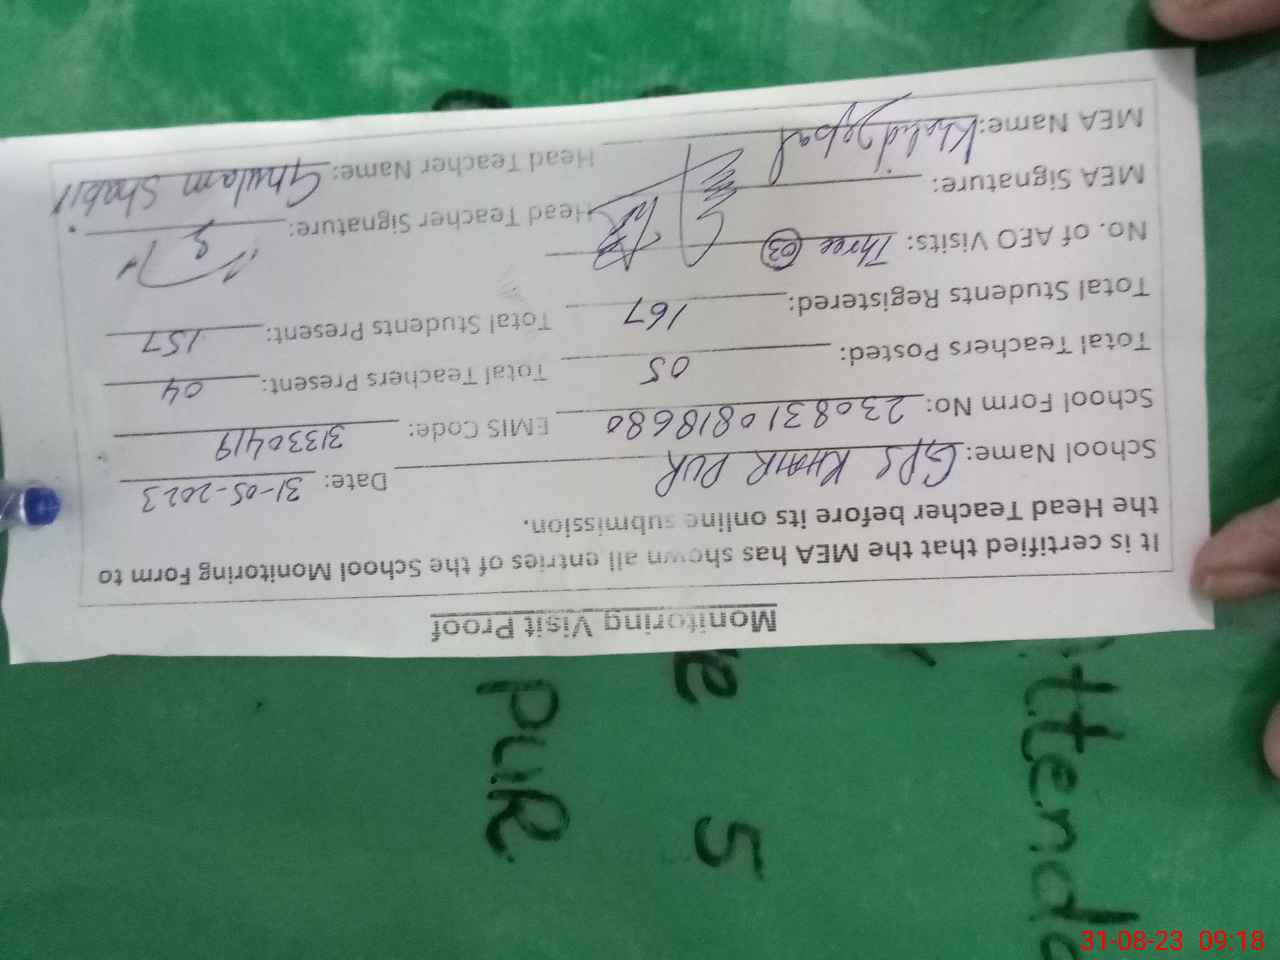 Monitoring Visit Proof
It is certified that the MEA has shown all entries of the School Monitoring Form to
the Head Teacher before its online submission.
School Name: GPS KHAIR PUR Date: 31-05-2023
School Form No: 2308310818680 EMIS Code: 31330419
Total Teachers Posted: 05 Total Teachers Present: 04
Total Students Registered: 167 Total Students Present: 157
No. of AEO Visits: Three 03
MEA Signature: Head Teacher Signature:
MEA Name: Khalid Head Teacher Name: Ghulam Shabir
PUR
5
ttend
31-08-23 09:18